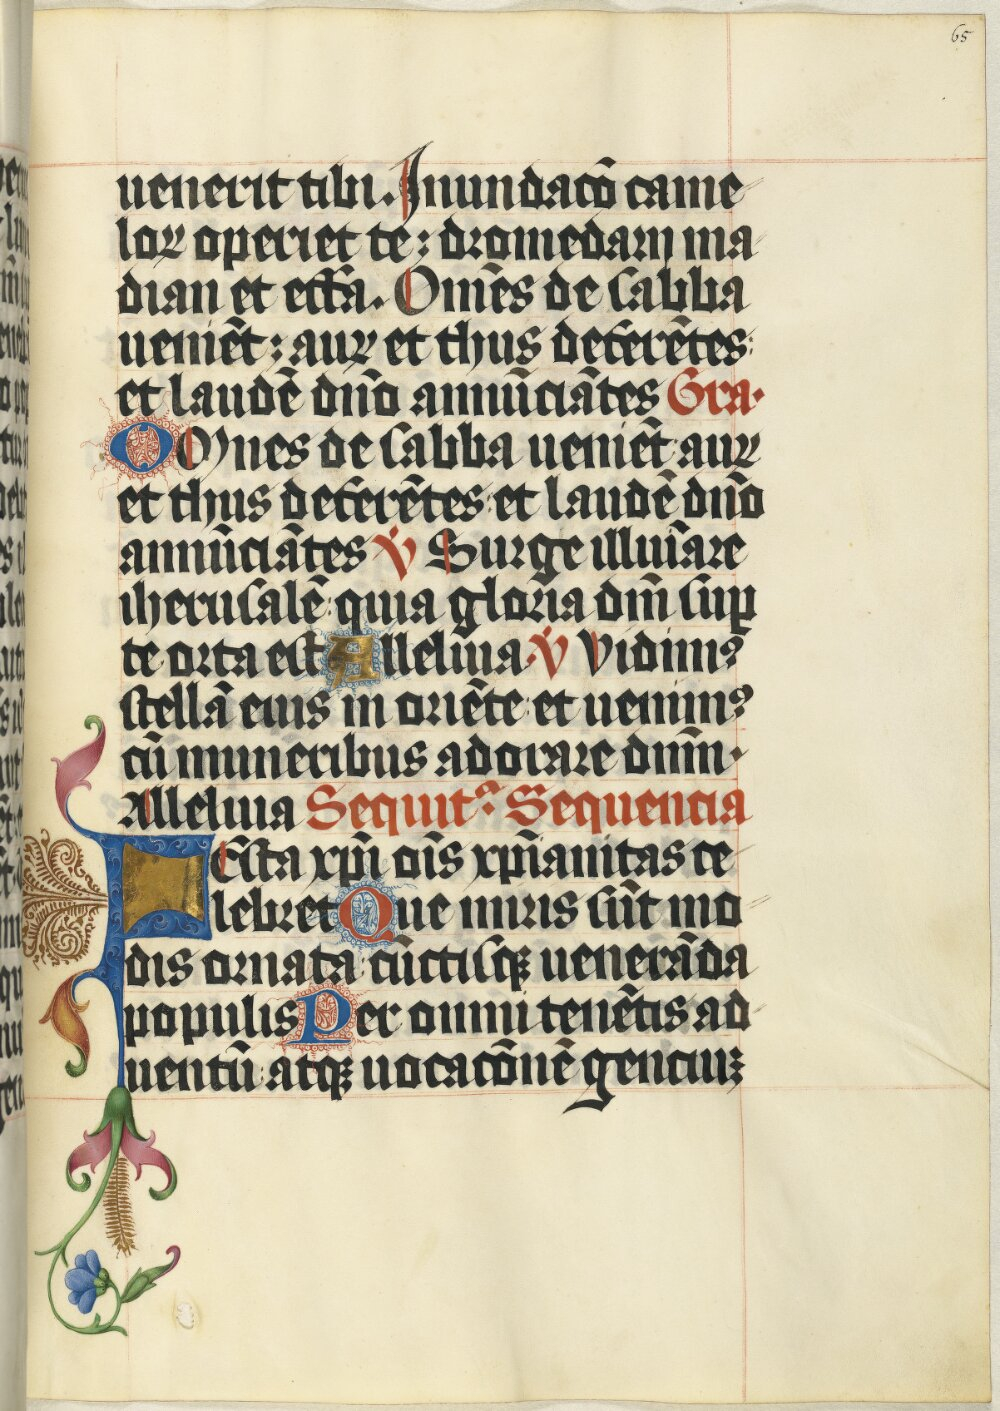 65
uenerit tibi. Inundacō came
loꝝ operiet te: dromedarii ma
dian et effa. Om̄es de sabba
ueniēt: auꝝ et thus deferētes:
et laudē dn̄o annūciātes Gra.
Omnes de sabba ueniēt auꝝ
et thus deferētes et laudē dn̄o
annūciātes v̇ Surge illuīare
iherusalē quia gloria dn̄i suꝑ
te orta est Alleluia. v̇ Vidimꝰ
stellā eius in oriēte et uenimꝰ
cū muneribus adorare dnm̄.
Alleluia Sequit᷑ Sequencia
Festa xp̄i oīs xp̄ianitas ce
lebret Que miris sūt mo
dis ornata cūctisqꝫ uenerāda
populis Per omnitenētis ad
uentū atqꝫ uocacōnē genciuꝫ